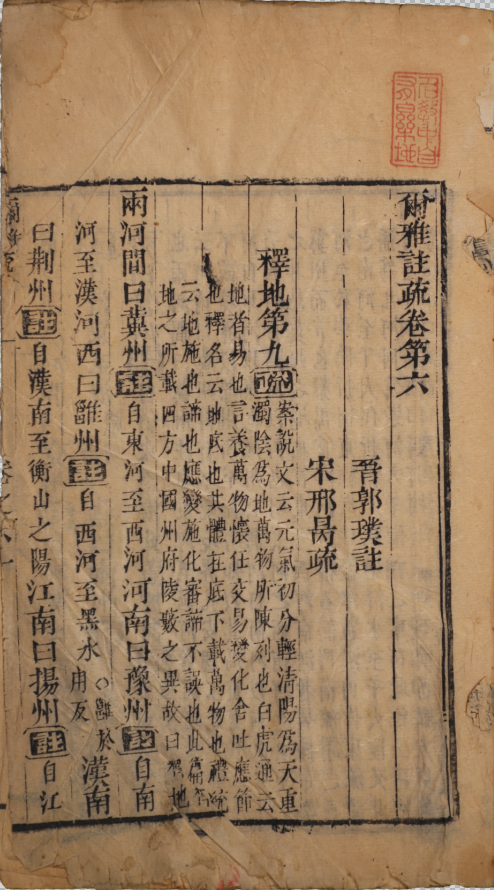 爾雅註疏卷第六
晉郭璞註
宋邢昺疏
釋地第九疏
案說文云元氣初分輕清陽為天重
濁陰為地萬物所陳列也白虎通云
地者易也言養萬物懷任交易變化含吐應節
也釋名云地底也其體在底下載萬物也禮統
云地施也諦也應變施化審諦不誤也此篇
地之所載四方中國州府陵藪之異故曰釋地
兩河間曰冀州註自東河至西河河南曰豫州註自南
河至漢河西曰雝州註自西河至黑水○雝於用反漢南
曰荆州註自漢南至衡山之陽江南曰揚州註自江